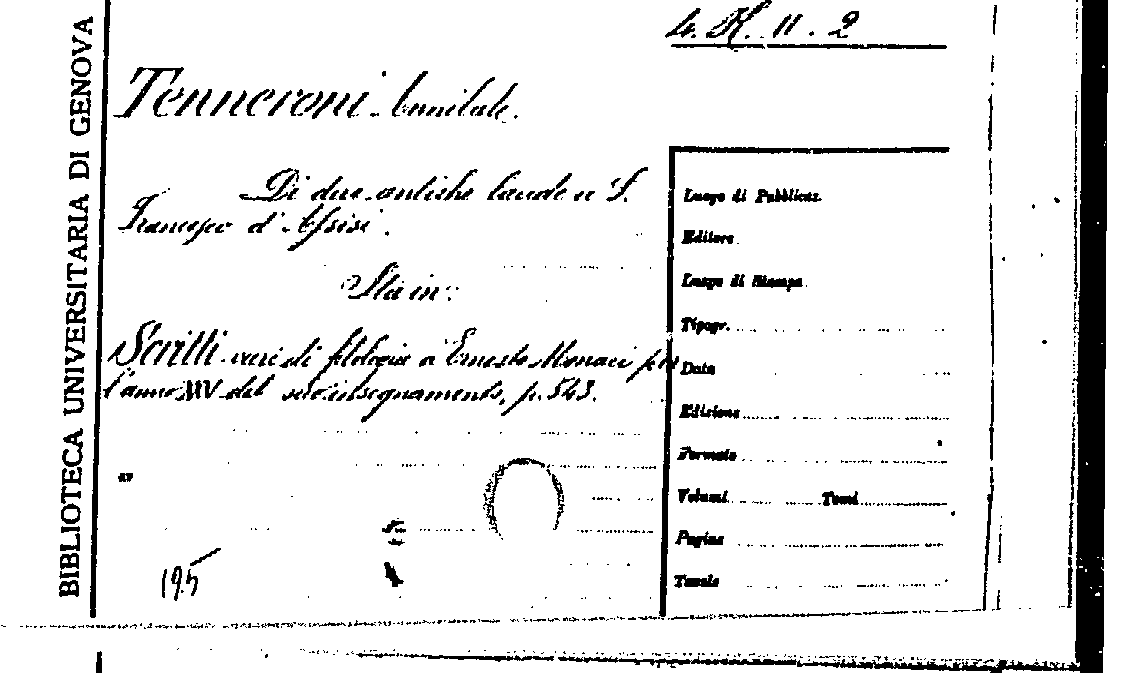 4. K. 11. 2
BIBLIOTECA UNIVERSITARIA DI GENOVA
Tenneroni Annibale.
Di due antiche laude a S.
Francesco d'Assisi.
Sta in:
Scritti vari di filologia a Ernesto Monaci per
l'anno XXV del suo insegnamento, p. 543.
195
Luogo di Pubblicaz.
Editore
Luogo di Stampa
Tipogr.
Data
Edizione
Formato
Volumi Tomi
Pagine
Tavole